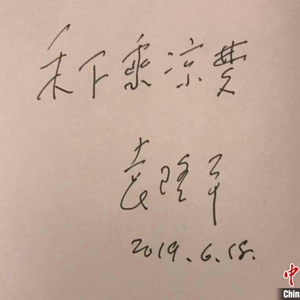 禾下乘凉梦
袁隆平
2019.6.18.
中
Chin